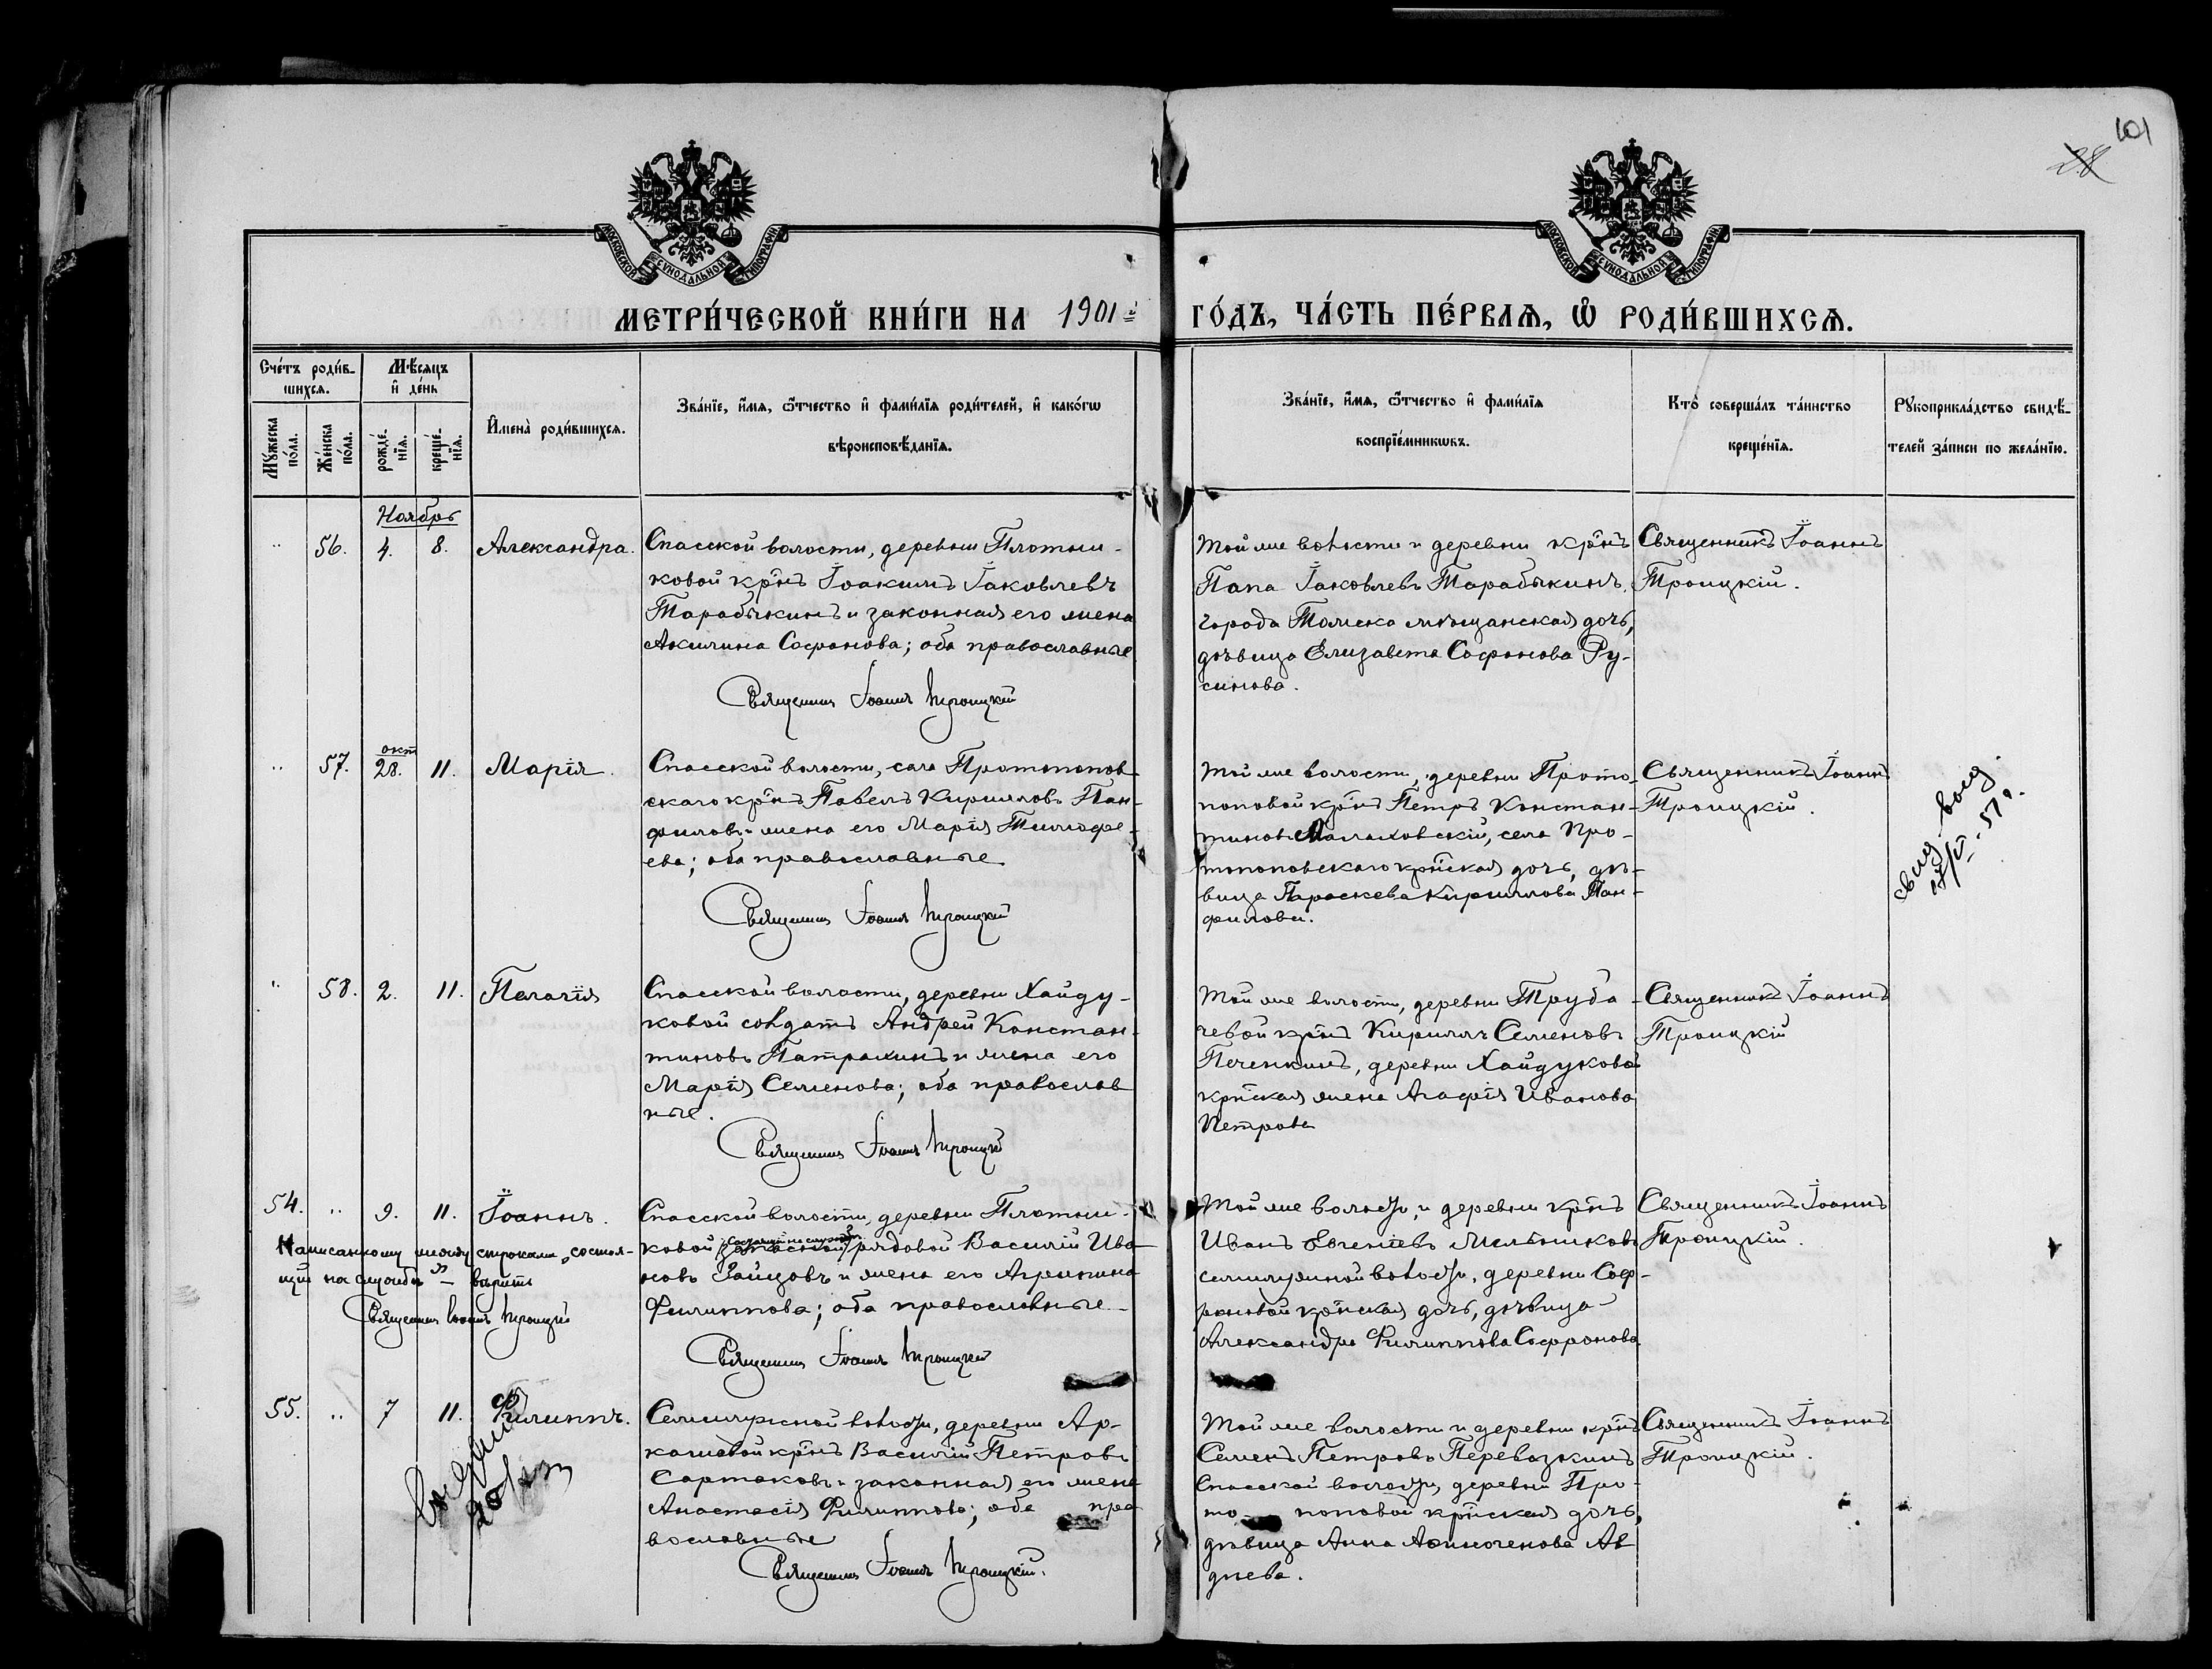 101
28
МОСКОВСКОЙ СѴНОДАЛЬНОЙ ТИПОГРАФІИ
МОСКОВСКОЙ СѴНОДАЛЬНОЙ ТИПОГРАФІИ
МЕТРИ́ЧЕСКОЙ КНИ́ГИ НА 1901й ГО́ДЪ, ЧА́СТЬ ПЕ́РВАѦ, Ѽ РОДИ́ВШИХСѦ.
Сче́тъ роди́в-
шихсѧ.
Мѣ́сѧцъ
и҆ де́нь
Мꙋ́жеска
по́ла.
Же́нска
по́ла.
рожде́-
нїѧ.
креще́-
нїѧ.
И҆мена̀ роди́вшихсѧ.
Зва́нїе, и҆́мѧ, ѻ҆́тчество и҆ фами́лїѧ роди́телей, и҆ како́гѡ
вѣроисповѣ́данїѧ.
Зва́нїе, и҆́мѧ, ѻ҆́тчество и҆ фами́лїѧ
воспрїе́мникѡвъ.
Кто̀ соверша́лъ та́инство
креще́нїѧ.
Рꙋкоприкла́дство свидѣ́-
телей за́писи по жела́нїю.
Ноябрь
„ 56. 4. 8. Александра.
Спасской волости, деревни Плотни-
ковой кр̃нъ Іоакимъ Іаковлевъ
Тарабыкинъ и законная его жена
Акилина Софонова; оба православные
Священникъ Іоаннъ Троицкій
Той же волости и деревни кр̃нъ
Папа Іаковлевъ Тарабыкинъ,
города Томска мѣщанская дочь,
дѣвица Елизавета Софонова Ру-
синова.
Священникъ Іоаннъ
Троицкій.
„ 57. окт 28. 11. Марія.
Спасской волости, села Протопопов-
скаго кр̃нъ Павелъ Кирилловъ Пан-
филовъ и жена его Марія Тимофе-
ева; оба православные
Священникъ Іоаннъ Троицкій
Той же волости, деревни Прото-
поповой кр̃нъ Петръ Констан-
тиновъ Малаховскій, села Про-
топоповскаго кр̃нская дочь, дѣ-
вица Параскева Кириллова Пан-
филова.
Священникъ Іоаннъ
Троицкій.
свид. выд.
„ 58. 2. 11. Пелагія
Спасской волости, деревни Хайду-
ковой солдатъ Андрей Констан-
тиновъ Патрахинъ и жена его
Марія Семенова; оба православ
ные.
Священникъ Іоаннъ Троицкій
Той же волости, деревни Труба-
чевой кр̃нъ Кириллъ Семеновъ
Печенкинъ, деревни Хайдуковой
кр̃нская жена Агафія Иванова
Петрова
Священникъ Іоаннъ
Троицкій
54. „ 9. 11. Іоаннъ.
Написанному между строками „состоя-
щій на службѣ" – вѣрить
Священникъ Іоаннъ Троицкій
Спасской волости, деревни Плотни-
состоящій на службѣ
ковой (запасной) рядовой Василій Ива-
новъ Зайцовъ и жена его Агрипина
Филиппова; оба православные
Священникъ Іоаннъ Троицкій
Той же волости, и деревни кр̃нъ
Иванъ Евгеніевъ Мельниковъ
Семилужной волости, деревни Соф-
роновой кр̃нская дочь, дѣвица
Александра Филиппова Софронова
Священникъ Іоаннъ
Троицкій.
55. „ 7 11. Филиппъ.
Семилужной волости, деревни Ар-
кашевой кр̃нъ Василій Петровъ
Сартаковъ и законная его жена
Анастасія Филиппова; оба пра
вославные
Священникъ Іоаннъ Троицкій.
Той же волости и деревни кр̃нъ
Семенъ Петровъ Перевозкинъ
Спасской волости, деревни Про-
то поповой кр̃нская дочь,
дѣвица Анна Афиногенова Ав
дѣева.
Священникъ Іоаннъ
Троицкій.